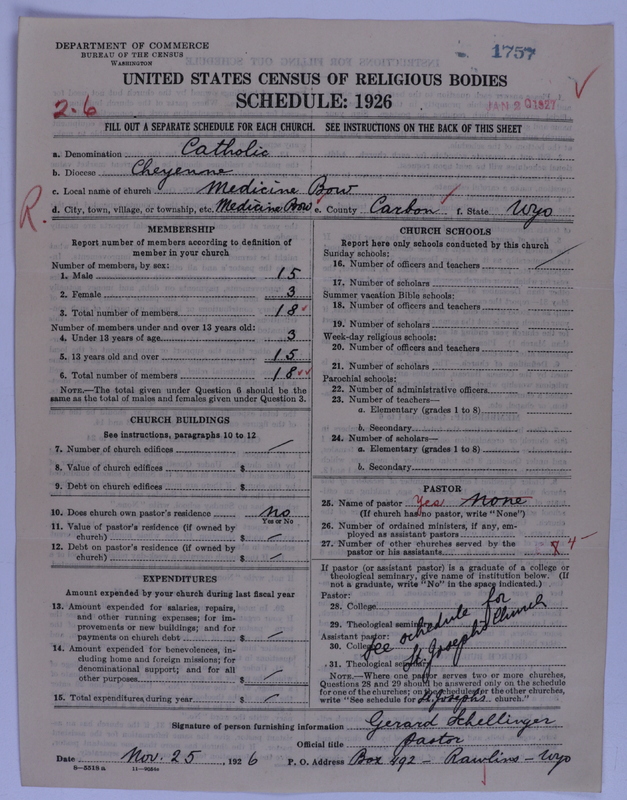 DEPARTMENT OF COMMERCE
BUREAU OF THE CENSUS
WASHINGTON
1757
UNITED STATES CENSUS OF RELIGIOUS BODIES
SCHEDULE: 1926
2-6
JAN 20 1927
FILL OUT A SEPARATE SCHEDULE FOR EACH CHURCH. SEE INSTRUCTIONS ON THE BACK OF THIS SHEET
a. Denomination Catholic
b. Diocese Cheyenne
c. Local name of church Medicine Bow
d. City, town, village, or township, etc. Medicine Bow e. County Carbon f. State Wyo
R.
MEMBERSHIP
Report number of members according to definition of
member in your church
Number of members, by sex:
1. Male 15
2. Female 3
3. Total number of members 18
Number of members under and over 13 years old:
4. Under 13 years of age 3
5. 13 years old and over 15
6. Total number of members 18
NOTE.—The total given under Question 6 should be
same as the total of males and females given under Question 3.
CHURCH BUILDINGS
See instructions, paragraphs 10 to 12
7. Number of church edifices
8. Value of church edifices $
9. Debt on church edifices $
10. Does church own pastor's residence no
Yes or No
11. Value of pastor's residence (if owned by
church) $
12. Debt on pastor's residence (if owned by
church) $
EXPENDITURES
Amount expended by your church during last fiscal year
13. Amount expended for salaries, repairs,
and other running expenses; for im-
provements or new buildings; and for
payments on church debt $
14. Amount expended for benevolences, in-
cluding home and foreign missions; for
denominational support; and for all
other purposes $
15. Total expenditures during year $
CHURCH SCHOOLS
Report here only schools conducted by this church
Sunday schools:
16. Number of officers and teachers
17. Number of scholars
Summer vacation Bible schools:
18. Number of officers and teachers
19. Number of scholars
Week-day religious schools:
20. Number of officers and teachers
21. Number of scholars
Parochial schools:
22. Number of administrative officers
23. Number of teachers—
a. Elementary (grades 1 to 8)
b. Secondary
24. Number of scholars—
a. Elementary (grades 1 to 8)
b. Secondary
PASTOR
25. Name of pastor Yes None
(If church has no pastor, write "None")
26. Number of ordained ministers, if any, em-
ployed as assistant pastors
27. Number of other churches served by the
pastor or his assistants
If pastor (or assistant pastor) is a graduate of a college or
theological seminary, give name of institution below. (If
not a graduate, write "No" in the space indicated.)
Pastor:
28. College
29. Theological seminary
Assistant pastor:
30. College
31. Theological seminary
See schedule for
St Josephs Church
NOTE.—Where one pastor serves two or more churches,
Questions 28 and 29 should be answered only on the schedule
for one of the churches; on the schedules for the other churches,
write "See schedule for St. Josephs church."
Signature of person furnishing information Gerard Schellinger
Official title Pastor
Date Nov. 25, 1926 P. O. Address Box 492 - Rawlins - Wyo
8-5518 a